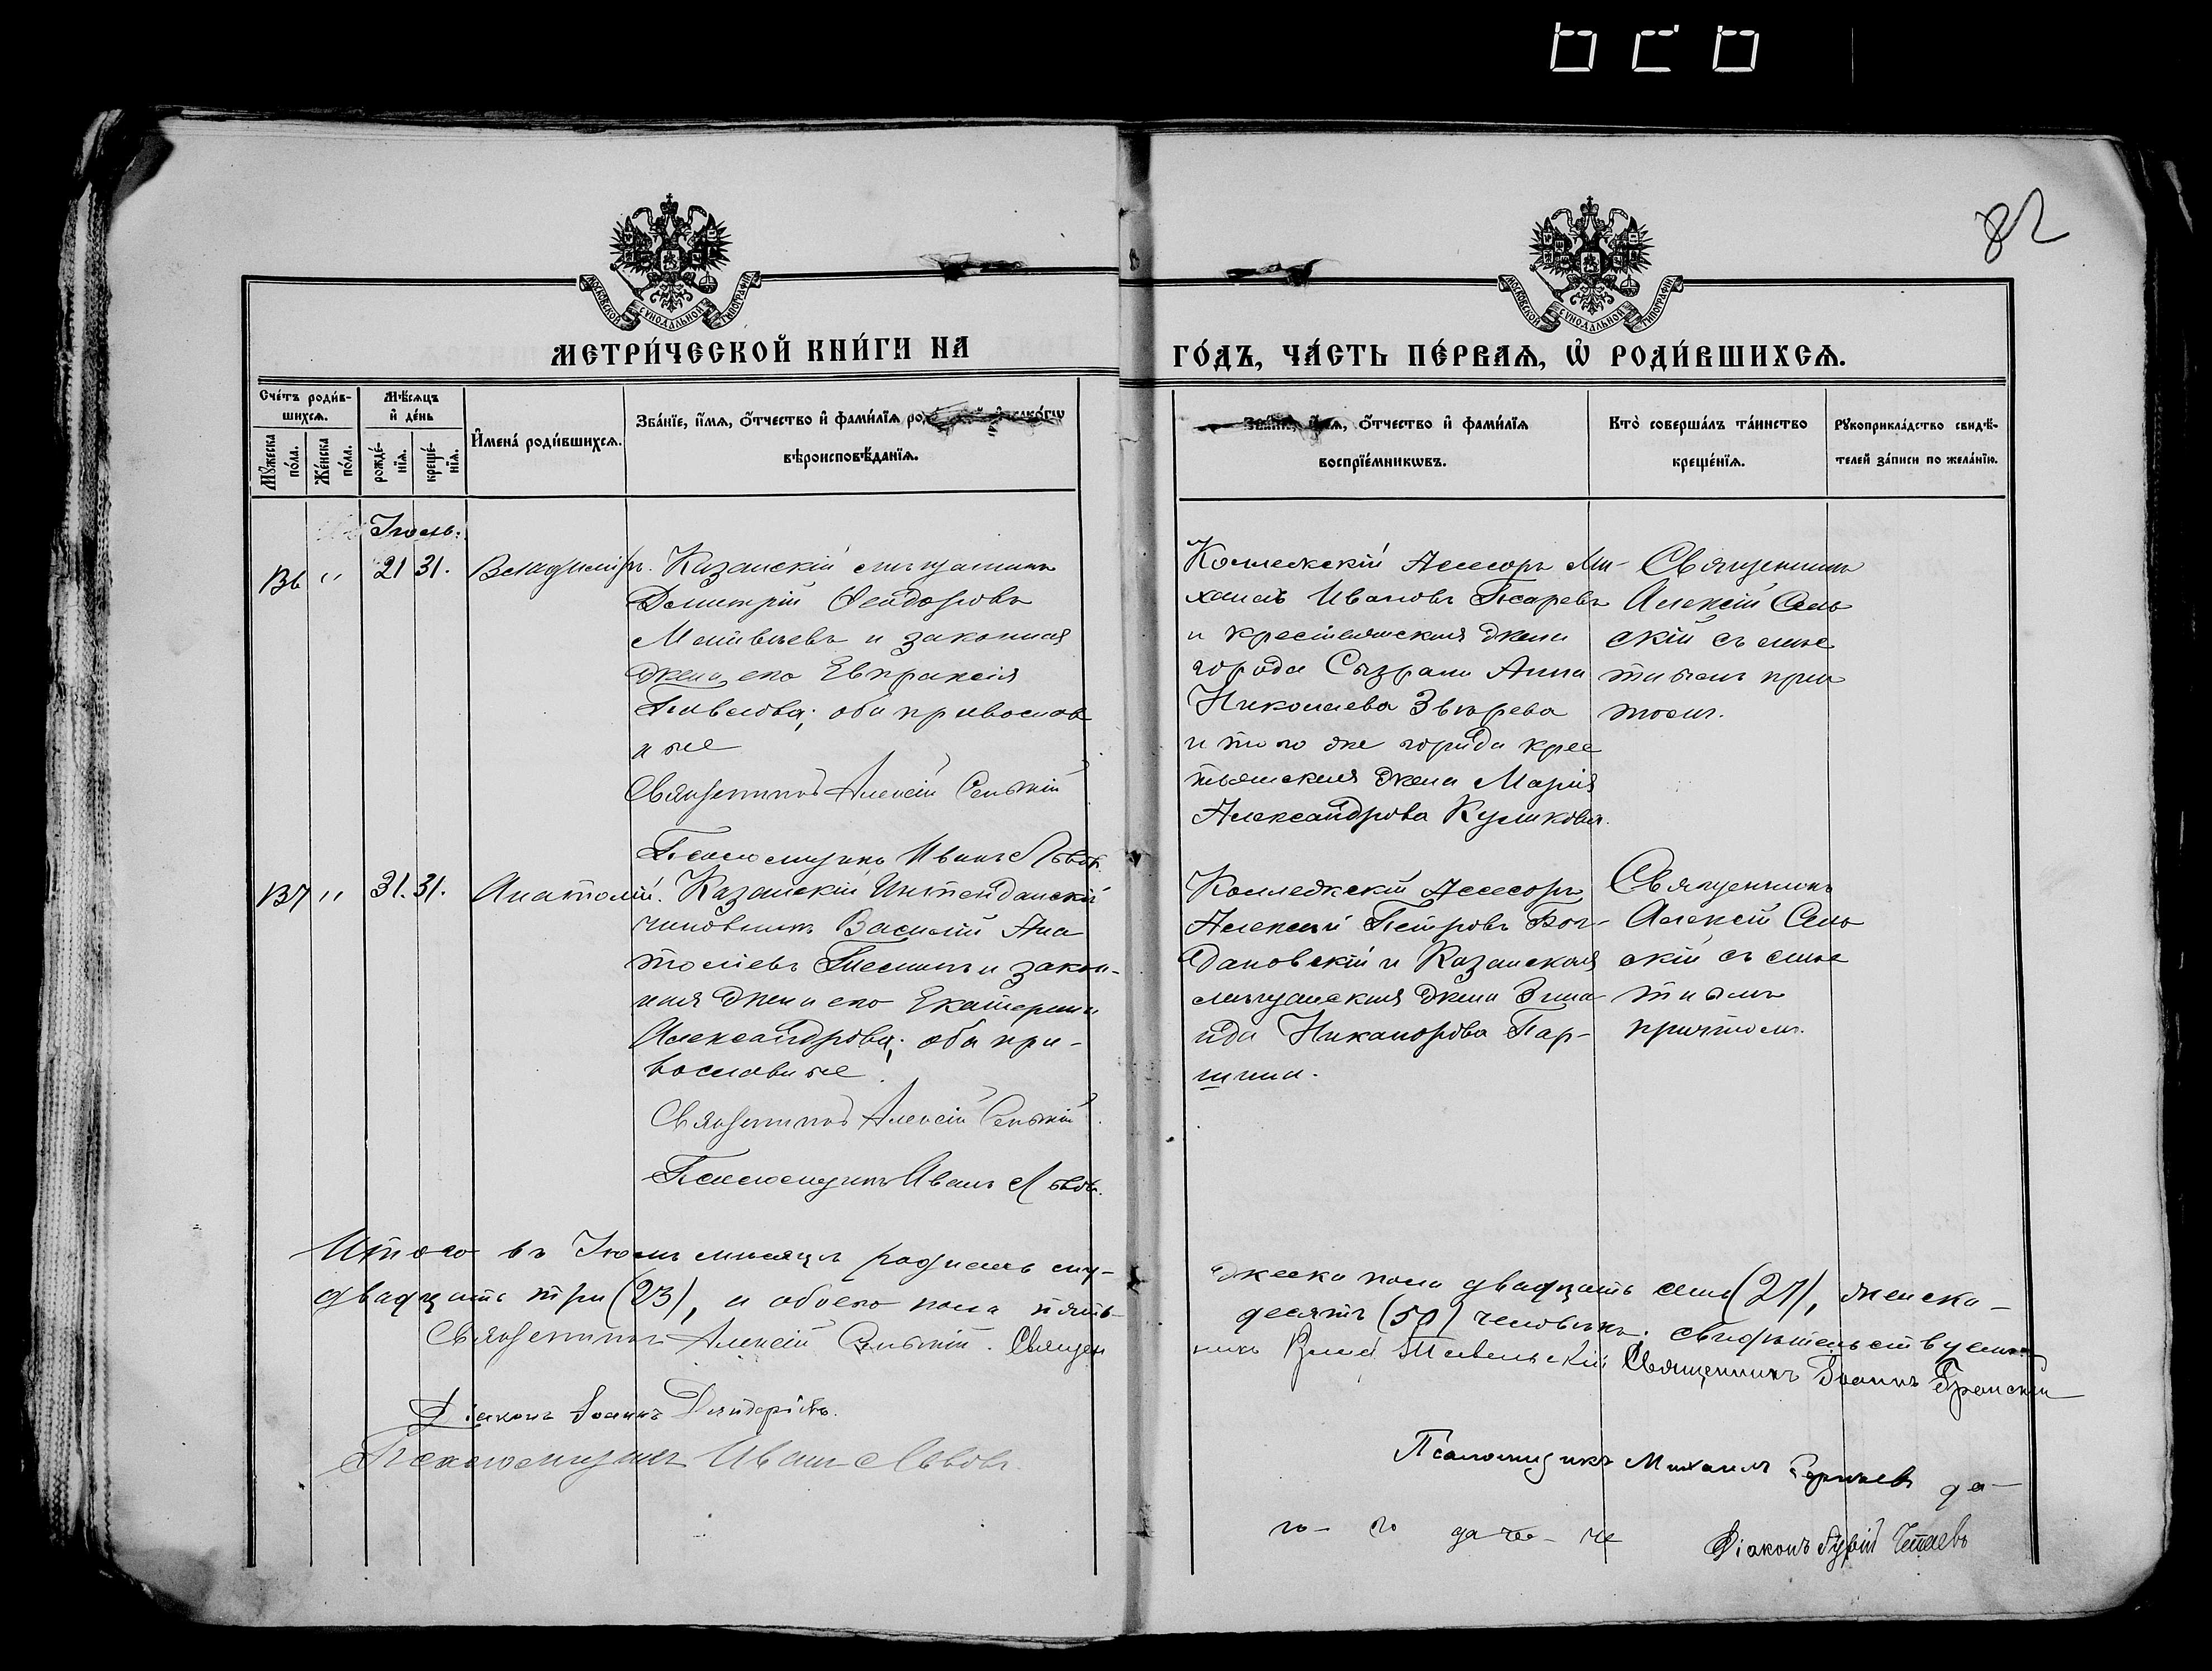 82
МОСКОВСКОЙ СУНОДАЛЬНОЙ ТИПОГРАФІИ
МОСКОВСКОЙ СУНОДАЛЬНОЙ ТИПОГРАФІИ
МЕТРИ́ЧЕСКОЙ КНИ́ГИ НА
ГО́ДЪ, ЧА́СТЬ ПЕ́РВАѦ, Ѡ РОДИ́ВШИХСѦ.
Сче́тъ роди́в-
шихсѧ.
Мѣ́сѧцъ
и҆ де́нь
Мꙋ́жеска
по́ла.
Же́нска
по́ла.
рожде́-
нїѧ.
креще́-
нїѧ.
И҆мена̀ роди́вшихсѧ.
Зва́нїе, и҆́мѧ, ѻ҆́тчество и҆ фами́лїѧ
вѣроисповѣ́данїѧ.
Зва́нїе, и҆́мѧ, ѻ҆́тчество и҆ фами́лїѧ
воспрїе́мникѡвъ.
Кто̀ соверша́лъ та́инство
креще́нїѧ.
Рꙋкоприкла́дство свидѣ́-
телей за́писи по жела́нїю.
Іюль.
136 " 21 31. Владиміръ.
Казанскій мѣщанинъ
Димитрій Ѳеодоровъ
Матвѣевъ и законная
жена его Евпраксія
Павлова; оба православ
ные
Священникъ Алексій Сельскій
Псаломщикъ Иванъ Львовъ.
Коллежскій Ассесоръ Ми-
хаилъ Ивановъ Писаревъ
и крестьянская жена
города Сызрани Анна
Николаева Звѣрева
и того же города крес
тьянская жена Марія
Александрова Куликова.
Священникъ
Алексій Сель
скій съ симъ
тымъ прич
томъ.
137 " 31. 31. Анатолій.
Казанскій Интендантскій
чиновникъ Василій Ана
толіевъ и закон-
ная жена его Екатерина
Александрова; оба пра-
вославные
Священникъ Алексій Сельскій
Псаломщикъ Иванъ Львовъ.
Коллежскій Ассесоръ
Алексѣй Петровъ Бог-
дановскій и Казанская
мѣщанская жена Зина
ида Никанорова Пар-
шина.
Священникъ
Алексій Сель
скій съ
тымъ
причтомъ.
Итого въ Іюлѣ мѣсяцѣ родилось му-
жеска пола двадцать семь (27), женска-
двадцать три (23), и обоего пола пять-
десятъ (50) человѣкъ. Свидѣтельствуемъ
Священникъ Алексій Сельскій. Священ
никъ Священникъ Іоаннъ
Діаконъ Іоаннъ
Псаломщикъ Иванъ Львовъ.
Псаломщикъ Михаилъ
Діаконъ Гурій